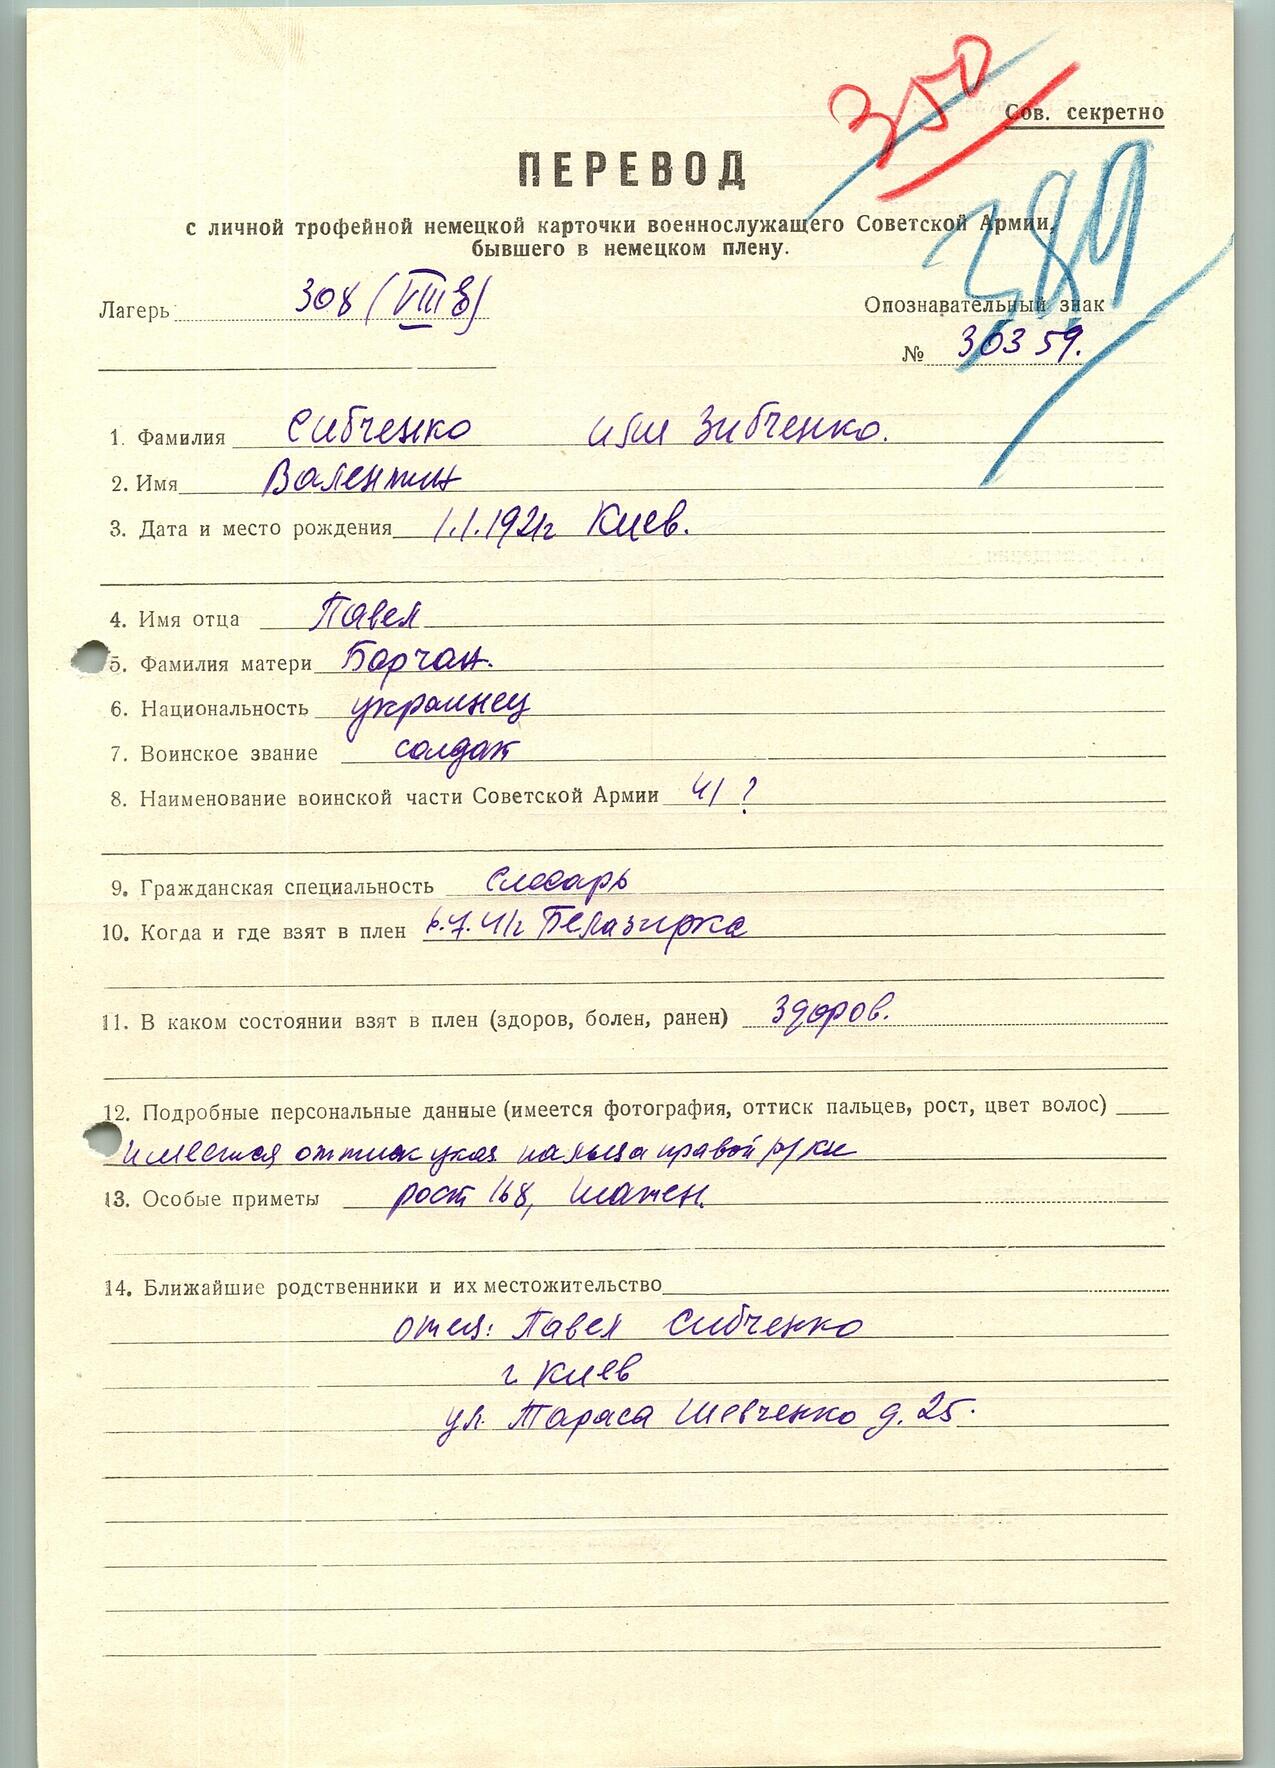 350
Сов. секретно
389
ПЕРЕВОД
с личной трофейной немецкой карточки военнослужащего Советской Армии,
бывшего в немецком плену.
Лагерь 308 (VIII в)
Опознавательный знак
№ 30359.
1. Фамилия Сибченко или Зибченко.
2. Имя Валентин
3. Дата и место рождения 1.1.1921г Киев.
4. Имя отца Павел
5. Фамилия матери Барчан.
6. Национальность украинец
7. Воинское звание солдат
8. Наименование воинской части Советской Армии 41 ?
9. Гражданская специальность слесарь
10. Когда и где взят в плен 6.7.41г Белазирка
11. В каком состоянии взят в плен (здоров, болен, ранен) Здоров.
12. Подробные персональные данные (имеется фотография, оттиск пальцев, рост, цвет волос)
имеется оттиск указ пальца правой руки
13. Особые приметы рост 168, шатен.
14. Ближайшие родственники и их местожительство
отец: Павел Сибченко
г. Киев
ул. Тараса Шевченко д. 25.